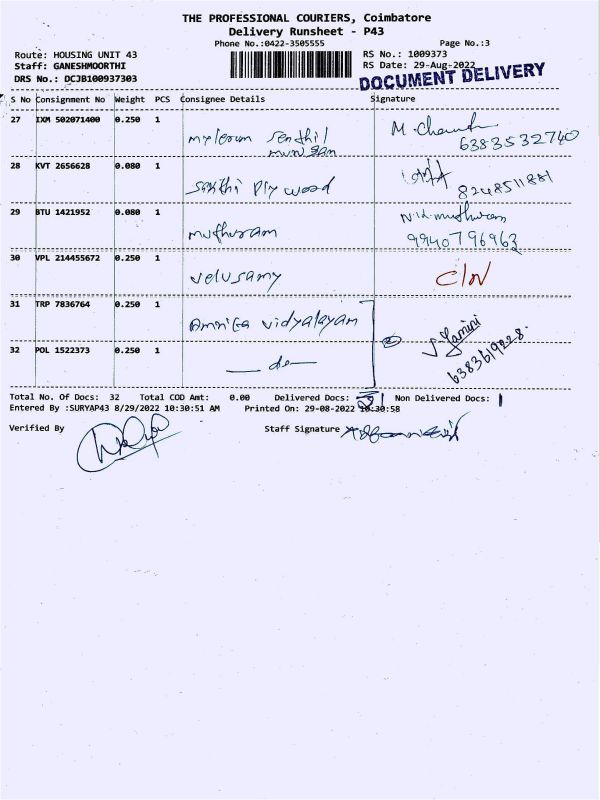 THE PROFESSIONAL COURIERS, Coimbatore
Delivery Runsheet - P43
Phone No.:0422-3505555
Page No.:3
Route: HOUSING UNIT 43
RS No.: 1009373
Staff: GANESHMOORTHI
RS Date: 29-Aug-2022
DRS No.: DCJB100937303
DOCUMENT DELIVERY
S No Consignment No Weight PCS Consignee Details Signature
27 IXM 502071400 0.250 1
senthil
murugan
M. 
6383532740
28 KVT 2656628 0.080 1 sakthi Plywood
8248511881
29 BTU 1421952 0.080 1 muthuram
muthuram
9940796963
30 VPL 214455672 0.250 1 velusamy C/N
31 TRP 7836764 0.250 1 Amrita vidyalayam
32 POL 1522373 0.250 1 —do—
S. Yamini
6383619228
Total No. Of Docs: 32 Total COD Amt: 0.00 Delivered Docs: 31 Non Delivered Docs: 1
Entered By :SURYAP43 8/29/2022 10:30:51 AM Printed On: 29-08-2022 10:30:58
Verified By Staff Signature